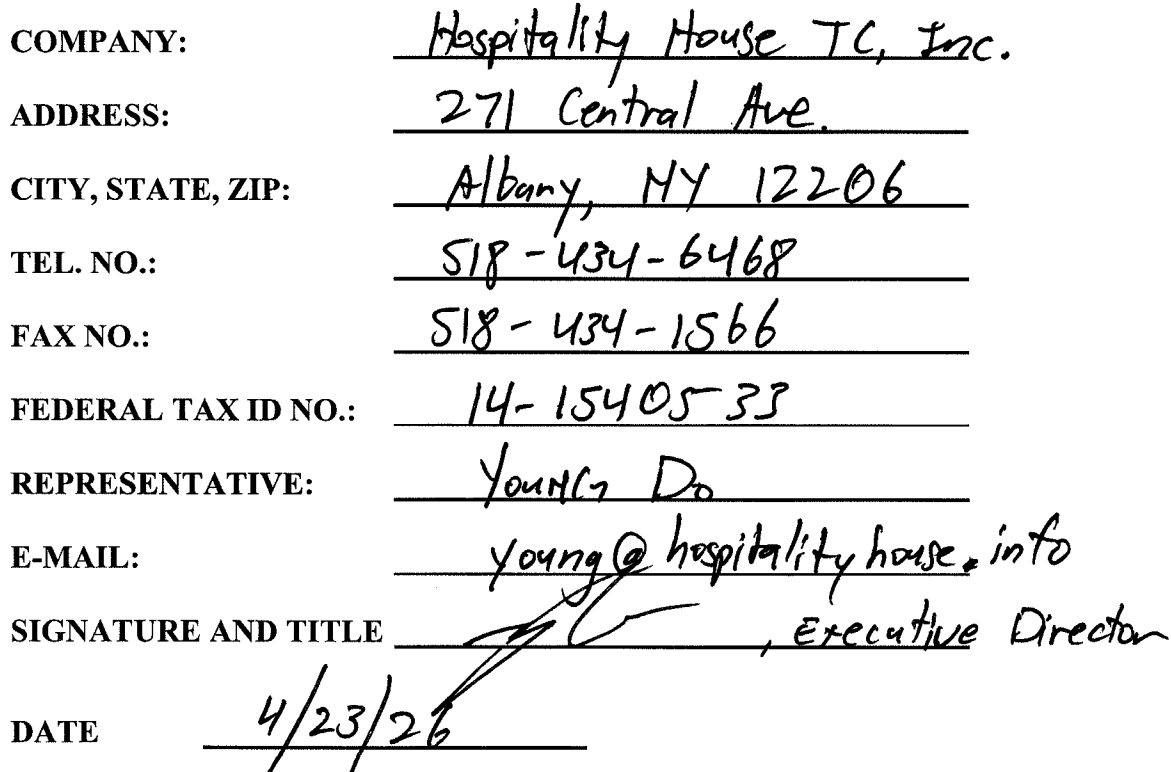 COMPANY: Hospitality House TC, Inc.
ADDRESS: 271 Central Ave.
CITY, STATE, ZIP: Albany, NY 12206
TEL. NO.: 518-434-6468
FAX NO.: 518-434-1566
FEDERAL TAX ID NO.: 14-1540533
REPRESENTATIVE: Young Do
E-MAIL: young@hospitalityhouse.info
SIGNATURE AND TITLE , Executive Director
DATE 4/23/26